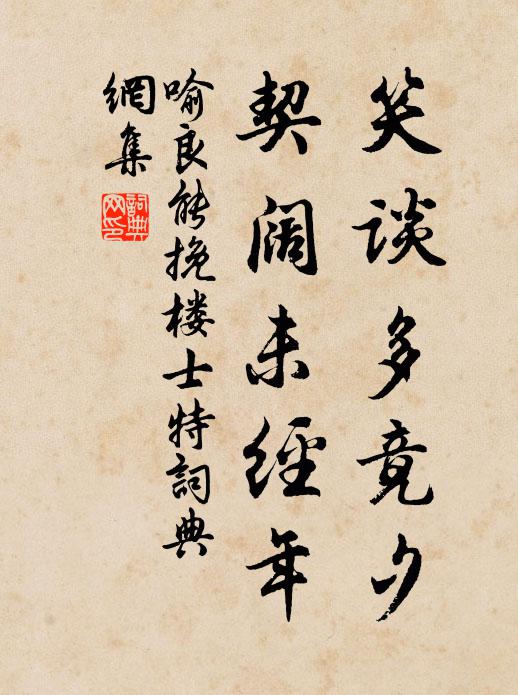 笑谈多竟夕
契阔未經年
喻良能挽楼士特詞典
網集
詞典网印